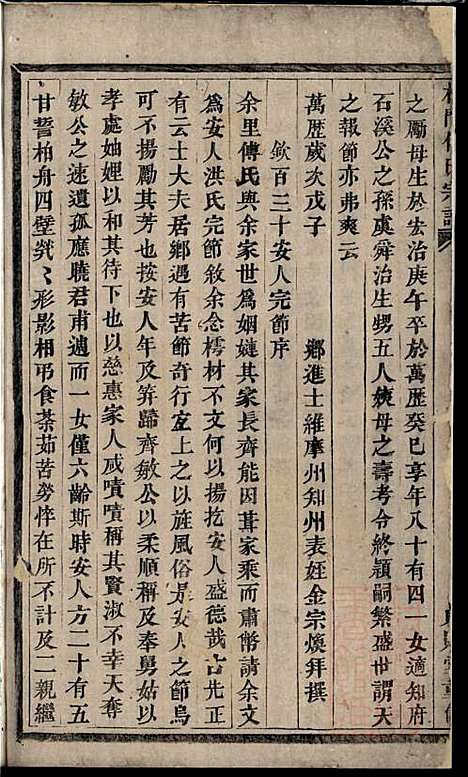 之勵母生於宏治庚午卒於萬歷癸巳享年八十有四一女適知府
石溪公之孫虞舜治生甥五人痍母之壽考令終穎嗣繁盛世謂天
之報節亦弗爽云
萬歷歲次戊子　鄉進士維摩州知州表姪金宗煥拜撰
欽百三十安人完節序
余里傅氏與余家世為姻娣其家長齊能因葺家乘而肅幣請余文
為安人洪氏完節敘余念樗材不文何以揚扢安人盛德哉古先正
有云士大夫居鄉遇有苦節奇行宜上之以旌風俗是安人之節烏
可不揚勵其芳也按安人年及笄歸齊敏公以柔順稱及奉舅姑以
孝處妯娌以和其待下也以慈惠家人咸嘖嘖稱其賢淑不幸天奪
敏公之速遺孤應曉君甫週而一女僅六齡斯時安人方二十有五
甘誓柏舟四壁煢〻形影相弔食荼茹苦勞悴在所不計及二親繼